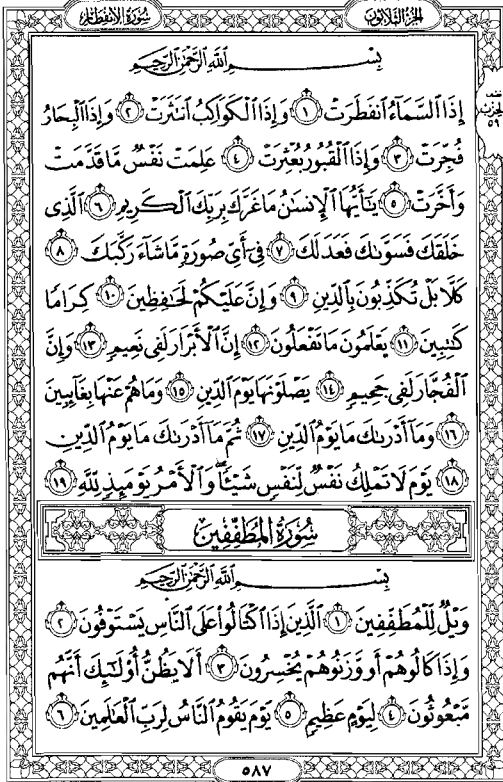 الجزء الثلاثون
سورة الانفطار
بِسْمِ ٱللَّهِ ٱلرَّحْمَٰنِ ٱلرَّحِيمِ
إِذَا ٱلسَّمَآءُ ٱنفَطَرَتْ ١ وَإِذَا ٱلْكَوَاكِبُ ٱنتَثَرَتْ ٢ وَإِذَا ٱلْبِحَارُ
فُجِّرَتْ ٣ وَإِذَا ٱلْقُبُورُ بُعْثِرَتْ ٤ عَلِمَتْ نَفْسٌ مَّا قَدَّمَتْ
وَأَخَّرَتْ ٥ يَٰٓأَيُّهَا ٱلْإِنسَٰنُ مَا غَرَّكَ بِرَبِّكَ ٱلْكَرِيمِ ٦ ٱلَّذِى
خَلَقَكَ فَسَوَّىٰكَ فَعَدَلَكَ ٧ فِىٓ أَىِّ صُورَةٍ مَّا شَآءَ رَكَّبَكَ ٨
كَلَّا بَلْ تُكَذِّبُونَ بِٱلدِّينِ ٩ وَإِنَّ عَلَيْكُمْ لَحَٰفِظِينَ ١٠ كِرَامًا
كَٰتِبِينَ ١١ يَعْلَمُونَ مَا تَفْعَلُونَ ١٢ إِنَّ ٱلْأَبْرَارَ لَفِى نَعِيمٍ ١٣ وَإِنَّ
ٱلْفُجَّارَ لَفِى جَحِيمٍ ١٤ يَصْلَوْنَهَا يَوْمَ ٱلدِّينِ ١٥ وَمَا هُمْ عَنْهَا بِغَآئِبِينَ
١٦ وَمَآ أَدْرَىٰكَ مَا يَوْمُ ٱلدِّينِ ١٧ ثُمَّ مَآ أَدْرَىٰكَ مَا يَوْمُ ٱلدِّينِ
١٨ يَوْمَ لَا تَمْلِكُ نَفْسٌ لِّنَفْسٍ شَيْـًٔا ۖ وَٱلْأَمْرُ يَوْمَئِذٍ لِّلَّهِ ١٩
سُورَةُ المُطَفِّفِينَ
بِسْمِ ٱللَّهِ ٱلرَّحْمَٰنِ ٱلرَّحِيمِ
وَيْلٌ لِّلْمُطَفِّفِينَ ١ ٱلَّذِينَ إِذَا ٱكْتَالُوا۟ عَلَى ٱلنَّاسِ يَسْتَوْفُونَ ٢
وَإِذَا كَالُوهُمْ أَو وَّزَنُوهُمْ يُخْسِرُونَ ٣ أَلَا يَظُنُّ أُو۟لَٰٓئِكَ أَنَّهُم
مَّبْعُوثُونَ ٤ لِيَوْمٍ عَظِيمٍ ٥ يَوْمَ يَقُومُ ٱلنَّاسُ لِرَبِّ ٱلْعَٰلَمِينَ ٦
٥٨٧